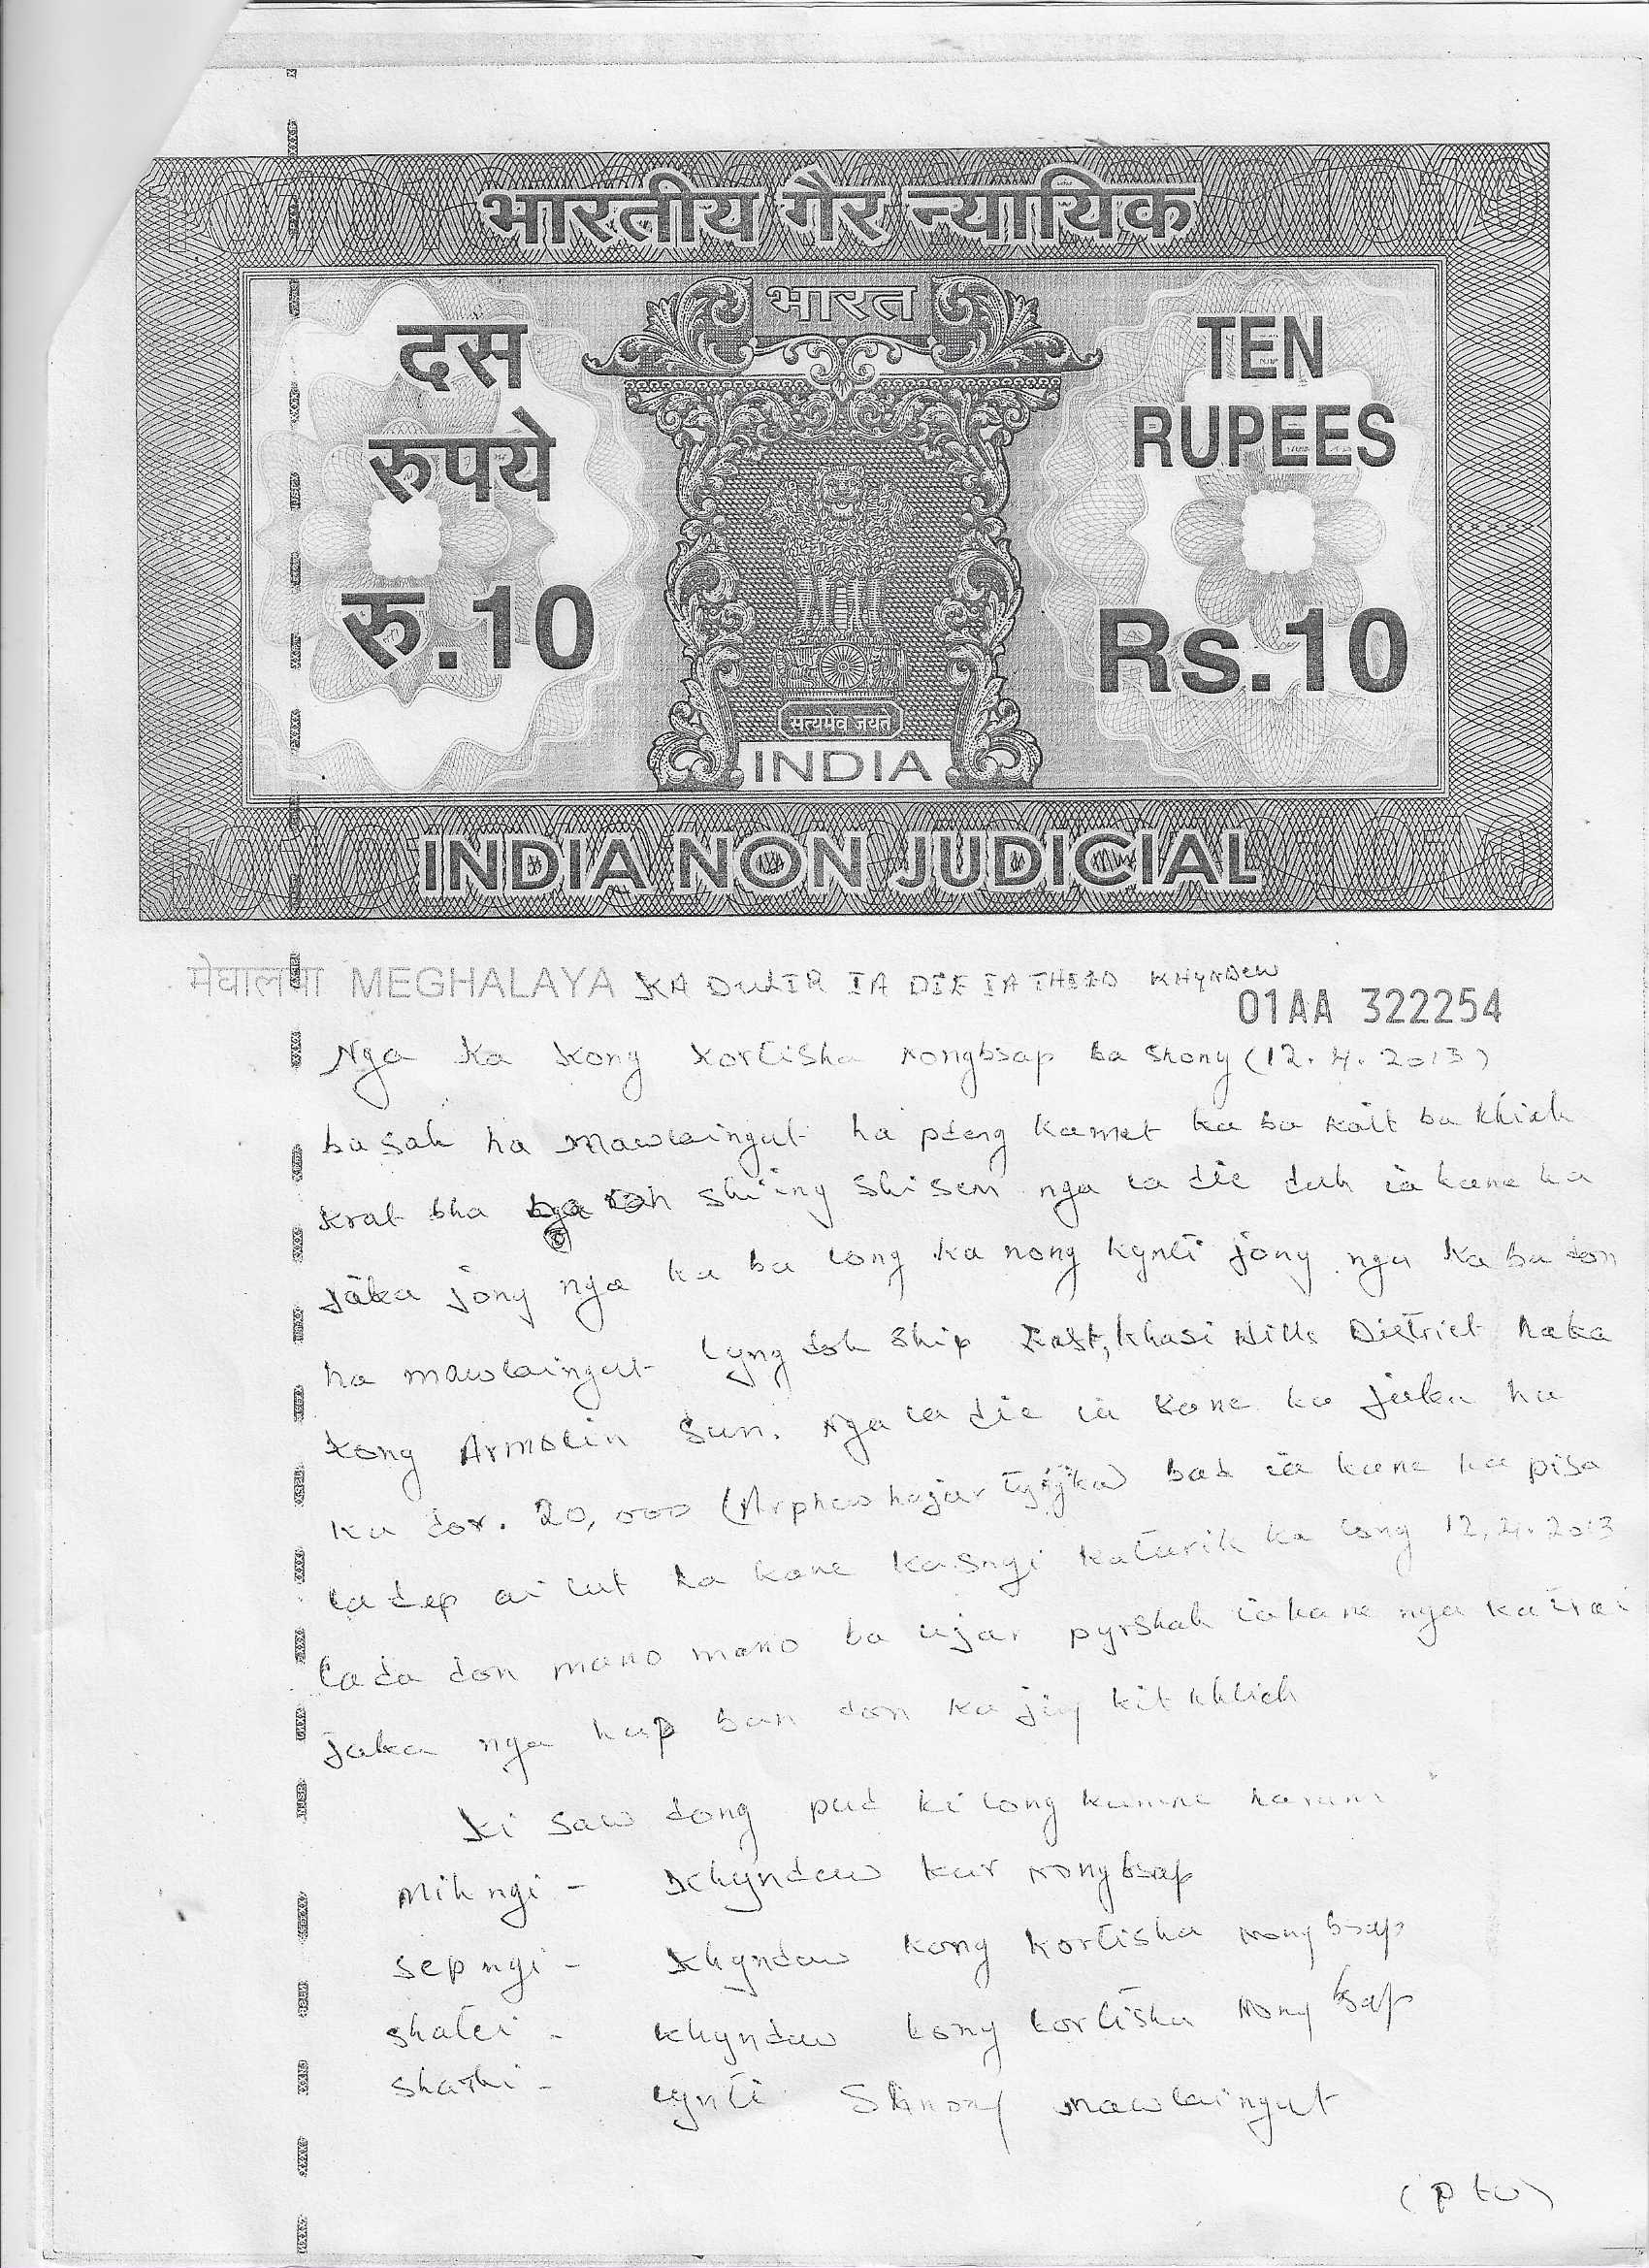 भारतीय गैर न्यायिक
भारत
दस
रुपये
रु.10
TEN
RUPEES
Rs.10
सत्यमेव जयते
INDIA
INDIA NON JUDICIAL
मेघालया MEGHALAYA KA DULIR IA DIE IATHIED KHYNDEW
01AA 322254
Nga ka Kong Kortisha Nongbsap ba shong (12.4.2013)
ba sah ha Mawlaingut ha pdeng kamet ka ba koit ba khiah
krat bha shi ing shi sem nga la die duh ia kane ka
jaka jong nga ka ba long ka nong kynti jong nga ka ba don
ha mawlaingut Lyngdoh ship East, Khasi Hills District haka
kong Armolin Sun. Nga la die ia kane ka jaka ha
ka dor. 20,000 (Arphew hajar tyngka) bad ia kane ka pisa
la dep ai lut ha kane ka sngi ka tarik ka long 12.4.2013
lada don mano mano ba ujar pyrshah ia kane nga ka trai
jaka nga hap ban don ka jing kit khlieh
Ki saw dong pud ki long kumne harum
Mih ngi - Khyndew kur Nongbsap
Sep ngi - Khyndew Kong Kortisha Nongbsap
shatei - Khyndew kong kortisha Nongbsap
shathi - lynti Shnong mawlaingut
(P t o)